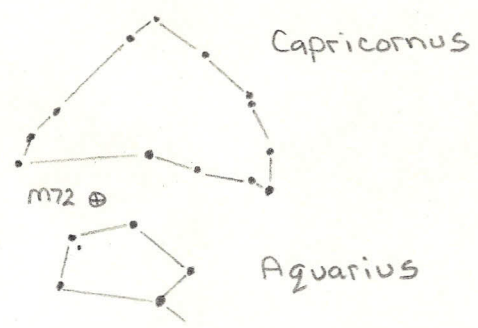 Capricornus
M72
Aquarius